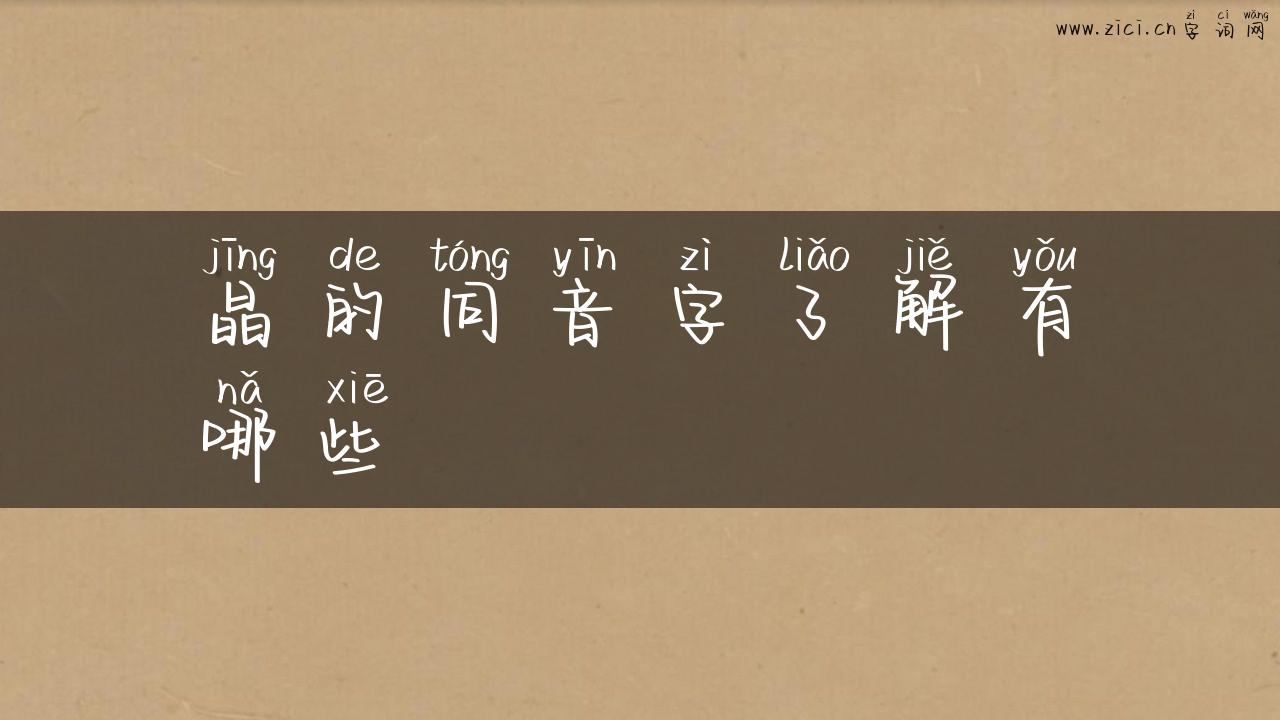 zì cí wǎng
www.zici.cn 字 词 网
jīng de tóng yīn zì liǎo jiě yǒu
晶 的 同 音 字 了 解 有
nǎ xiē
哪 些